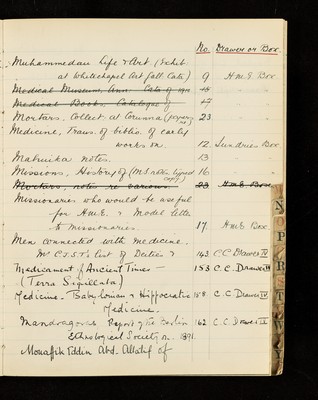 No. Drawer or Box.
Muhammedan Life & Art. (Exhib.
at Whitechapel Art Gall. Cata.) 9 H.M.E Box
Medical Museum, Ann. Cata of 45 " "
Medical Books. Catalogue of 47
Mortars. Collect. at Corunna 23 " "
Medicine, Trans. of biblio. of early
works on. 12 Sundries Box
Matruika notes. 13 " "
Missions, History of (MS notes, typed copy) 16 " "
Mortars, notes re various. 23 H.M.E. Box
Missionaries who would be useful
for H.M.E. & Model letter
to missionaries. 17 H.M.E Box
Men connected with medicine.
Mr C.J.S.T's list of Deities & 143 C.C Drawer IV
Medicament of Ancient Times — 153 C.C. Drawer III
(Terra Sigillata)
Medicine. Babylonian & Hippocratic 158 C.C. Drawer IV
Medicine.
Mandragoras Report of the Berlin 162 C.C. Drawer II
Ethnological Society on. 1891.
Mouaffik Eddin Abd. Allatif of
N
O
P
R
T
W
Y